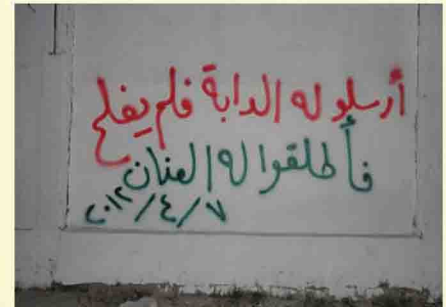 أرسلو له الدابة فلم يفلح
فأطلقوا له العنان
٢٠١٢/٤/٧